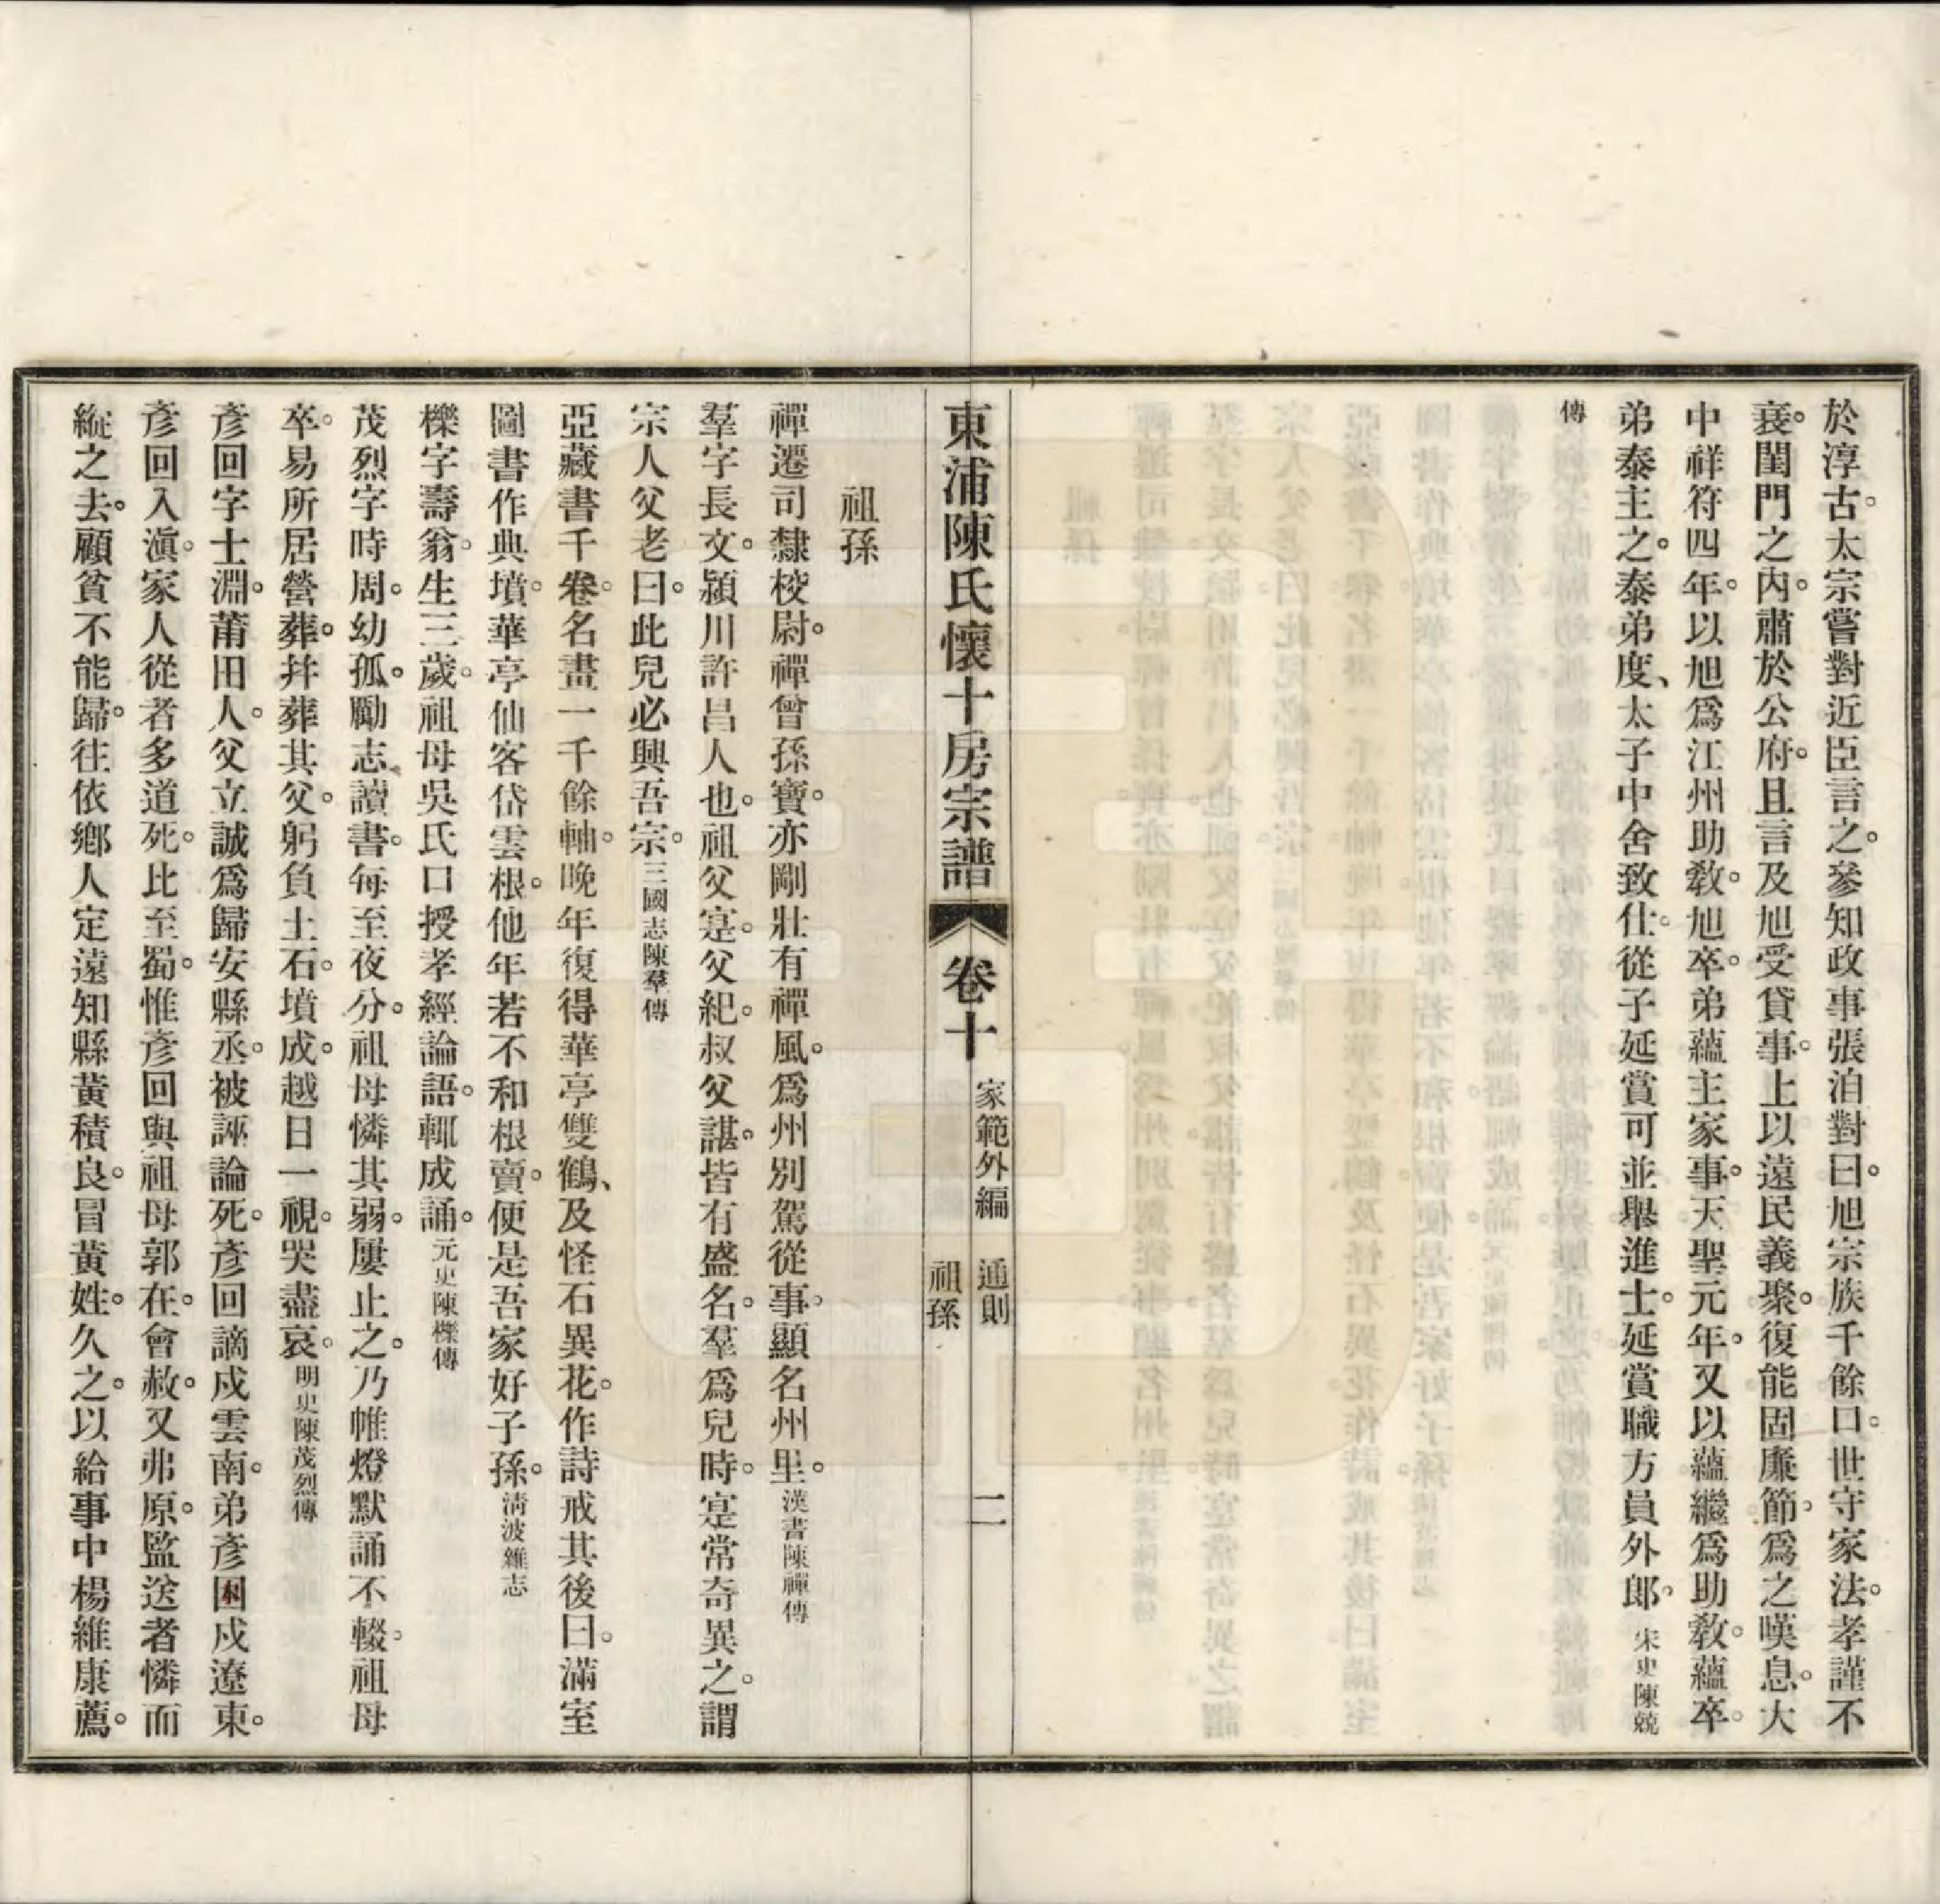 於淳古。太宗嘗對近臣言之。參知政事張洎對曰。旭宗族千餘口。世守家法。孝謹不
衰。閨門之內。肅於公府。且言及旭受貸事。上以遠民義聚。復能固廉節。爲之嘆息。大
中祥符四年。以旭爲江州助敎。旭卒。弟蘊主家事。天聖元年。又以蘊繼爲助敎。蘊卒。
弟泰主之。泰弟度、太子中舍致仕。從子延賞可並舉進士。延賞職方員外郎。宋史陳兢
傳
東浦陳氏懷十房宗譜 卷十 家範外編 通則 祖孫 二
祖孫
禪遷司隸校尉。禪曾孫寶。亦剛壯有禪風。爲州別駕從事。顯名州里。漢書陳禪傳
羣字長文。潁川許昌人也。祖父寔。父紀。叔父諶。皆有盛名。羣爲兒時。寔常奇異之。謂
宗人父老曰。此兒必興吾宗。三國志陳羣傳
亞藏書千卷。名畫一千餘軸。晚年復得華亭雙鶴、及怪石異花。作詩戒其後曰。滿室
圖書作典墳。華亭仙客岱雲根。他年若不和根賣。便是吾家好子孫。淸波雜志
櫟字壽翁。生三歲。祖母吳氏口授孝經論語。輒成誦。元史陳櫟傳
茂烈字時周。幼孤。勵志讀書。每至夜分。祖母憐其弱。屢止之。乃帷燈默誦不輟。祖母
卒。易所居營葬。幷葬其父。躬負土石。墳成。越日一視。哭盡哀。明史陳茂烈傳
彥回字士淵。莆田人。父立誠爲歸安縣丞。被誣論死。彥回謫戍雲南。弟彥困戍遼東。
彥回入滇。家人從者多道死。比至蜀。惟彥回與祖母郭在。會赦。又弗原。監送者憐而
縱之去。顧貧不能歸。往依鄕人定遠知縣黃積良。冒黃姓。久之。以給事中楊維康薦。